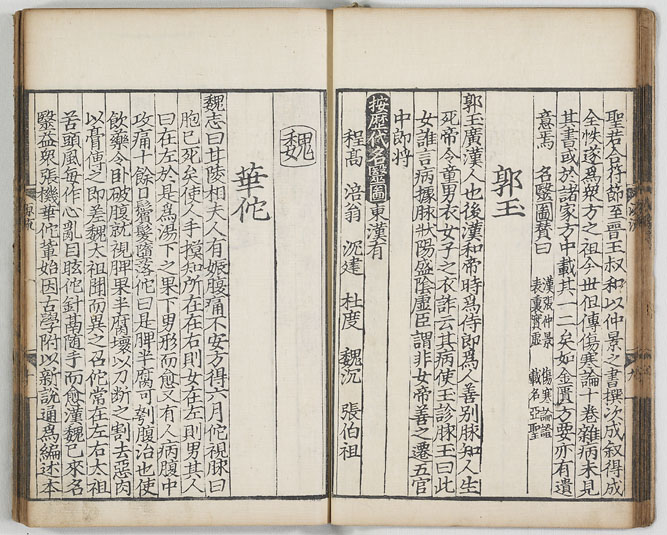 聖若合符節至晉王叔和以仲景之書撰次成叙得成
全帙遂爲衆方之祖今世但傳傷寒論十卷雜病未見
其書或於諸家方中載其一二矣如金匱方要亦有遺
意焉 名醫圖賛曰 漢張仲景 傷寒論證
表裏實虛 載名亞聖
郭玉
郭玉廣漢人也後漢和帝時爲侍郎爲人善別脉知人生
死帝令童男衣女子之衣詐云其病使玉診脉玉曰此
女誰言病據脉狀陽盛陰虛臣謂非女帝善之遷五官
中郎將
按歴代名醫圖東漢有
程高 涪翁 沈建 杜度 魏沉 張伯祖
魏
華佗
魏志曰甘陵相夫人有娠腹痛不安方得六月佗視脉曰
胞已死矣使人手摸知所在在右則女在左則男其人
曰在左於是爲湯下之果下男形而愈又有人病腹中
攻痛十餘日鬢髮墮落佗曰是脾半腐可刳腹治也使
飲藥令卧破腹就視脾果半腐壞以刀斷之割去惡肉
以膏傅之即差魏太祖聞而異之召佗常在左右太祖
苦頭風每作心亂目眩佗針鬲随手而愈漢魏已來名
醫益衆張機華佗輩始因古學附以新說通爲編述本